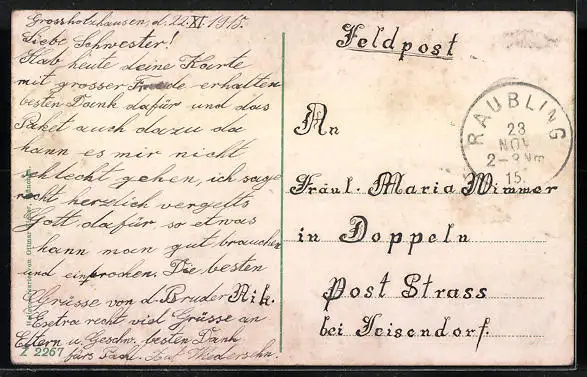 Grossholzhausen, d. 22. XI. 1915.
Liebe Schwester!
Hab heute deine Karte
mit grosser Freude erhalten
besten Dank dafür und das
Paket auch dazu da
kann es mir nicht
schlecht gehen, ich sage
recht herzlich vergelts
Gott dafür, so etwas
kann man gut brauchen
und einbrocken. Die besten
Grüsse von d. Bruder Nik.
Extra recht viel Grüsse an
Eltern u. Geschw. besten Dank
fürs Packl. Auf Wiedersehn.
Z 2267
Feldpost
RAUBLING
23
NOV
2-3 Nm
15
An
Fräul. Maria Wimmer
in Doppeln
Post Strass
bei Teisendorf.